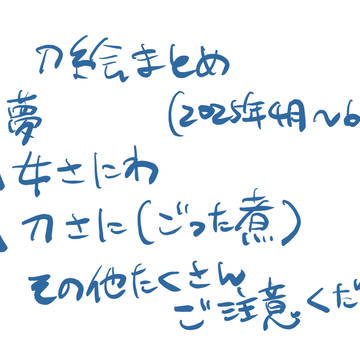 刀絵まとめ
夢 (2025年4月〜6
女さにわ
刀さに(ごった煮)
その他たくさん
ご注意くだ